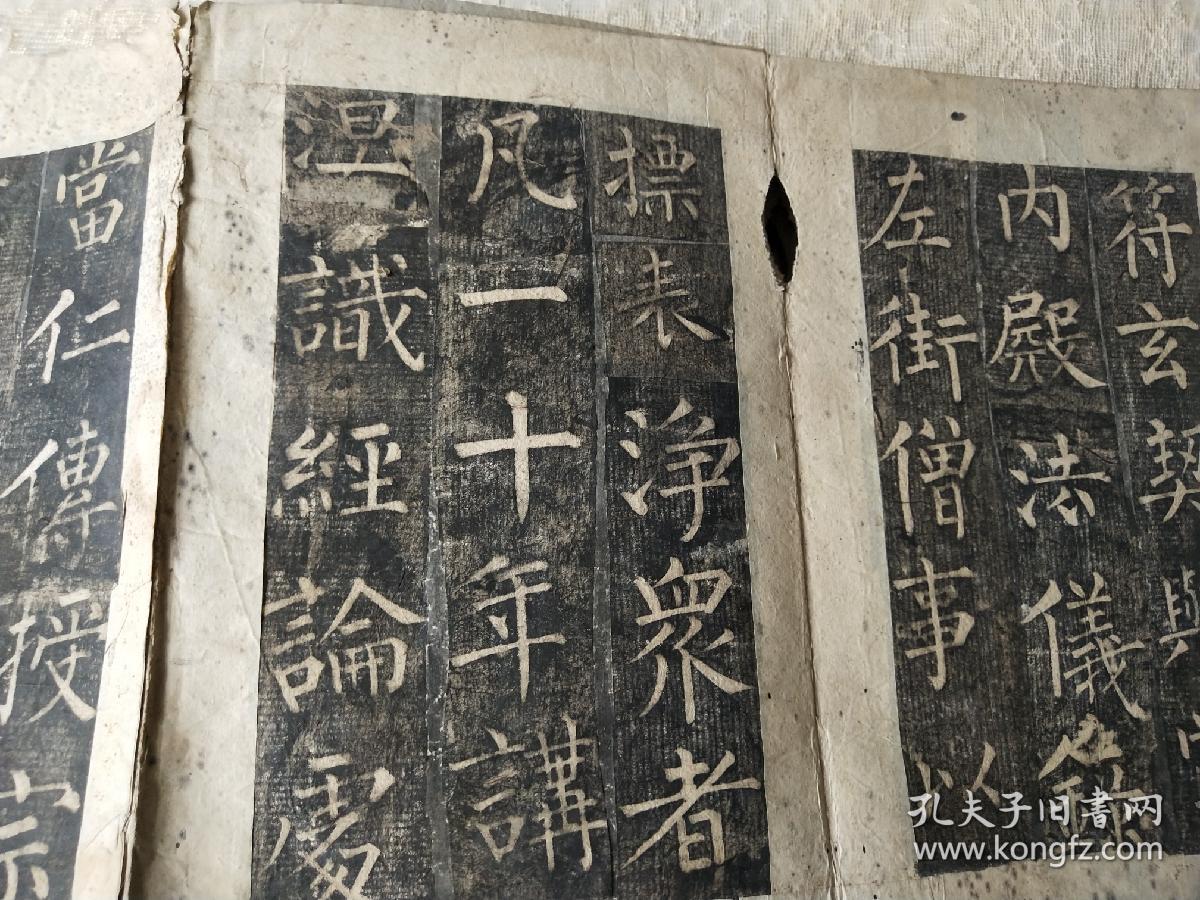 符玄契與
内殿法儀錄
左街僧事以
標表淨衆者
凡一十年講
涅識經論處
當仁傳授宗
孔夫子旧書网
www.kongfz.com